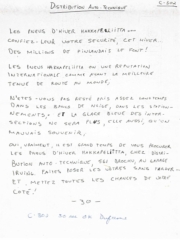 DISTRIBUTION AUTO TECHNIQUE
C-304
LES PNEUS D'HIVER HAKKAPELIITTA...
CONFIEZ-LEUR VOTRE SÉCURITÉ, CET HIVER...
DES MILLIONS DE FINLANDAIS LE FONT!
LES PNEUS HAKKAPELIITTA ONT UNE RÉPUTATION
INTERNATIONALE COMME AYANT LA MEILLEURE
TENUE DE ROUTE AU MONDE.
N'ÊTES-VOUS PAS
DANS LES BANCS DE NEIGE, DANS LES
ET LA GLACE BLEUE DES INTER-
SECTIONS NE SERA PLUS, QU'UN
MAUVAIS SOUVENIR.
OUI, VRAIMENT, IL EST GRAND TEMPS DE VOUS PROCURER
LES PNEUS D'HIVER HAKKAPELIITTA, CHEZ DISTRI-
BUTION AUTO-TECHNIQUE,
LAVAL. FAITES POSER LES VÔTRES SANS TARDER
ET, METTEZ TOUTES LES CHANCES DE VOTRE
CÔTÉ!
- 30 -
C-304